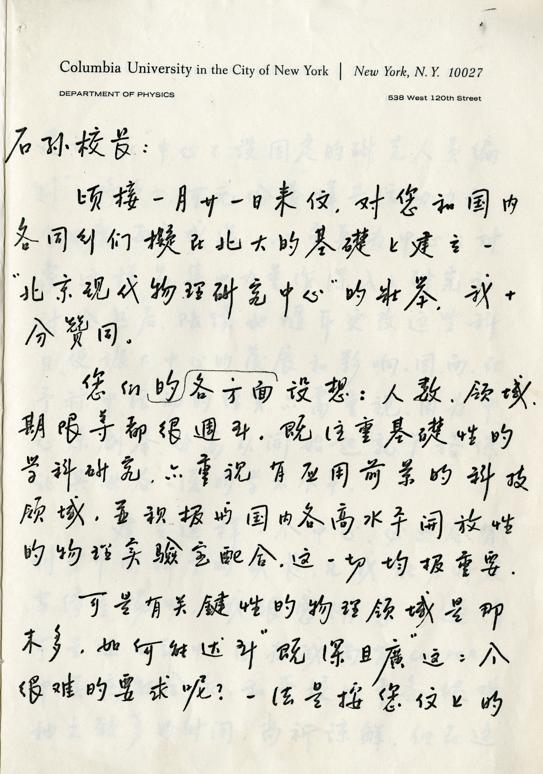 Columbia University in the City of New York | New York, N.Y. 10027
DEPARTMENT OF PHYSICS 538 West 120th Street
石孙校长：
顷接一月廿一日来信，对您和国内
各同行们擬在北大的基礎上建立一
"北京现代物理研究中心"的壮举，我十
分贊同。
您们的各方面设想：人数、领域、
期限等都很週到。既注重基礎性的
学科研究，亦重视有应用前景的科技
领域，並积极的国内各高水平開放性
的物理实驗室配合。这一切均极重要。
可是有关鍵性的物理领域是那
末多，如何能达到"既深且廣"这二个
很难的要求呢？一法是按您信上的